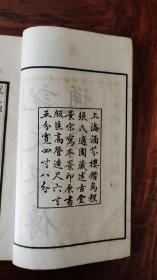 上海涵芬樓借烏程
張氏適園藏述古堂
景宋寫本景印原書
版匡高營造尺六寸
五分寬四寸八分